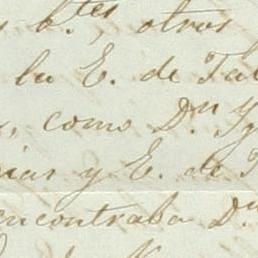 b.tes, otros
la E. de Tal
, como Dn Y
ias y E. de T
encontraba Dn